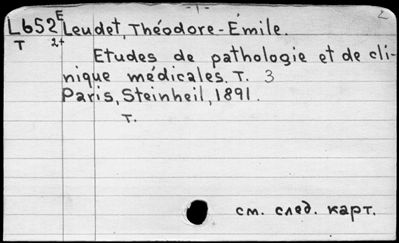 - 1 - 2
L652 E Leudet, Théodore-Émile.
T 2+ Etudes de pathologie et de cli-
nique médicales. T. 3
Paris, Steinheil, 1891.
T.
см. след. карт.